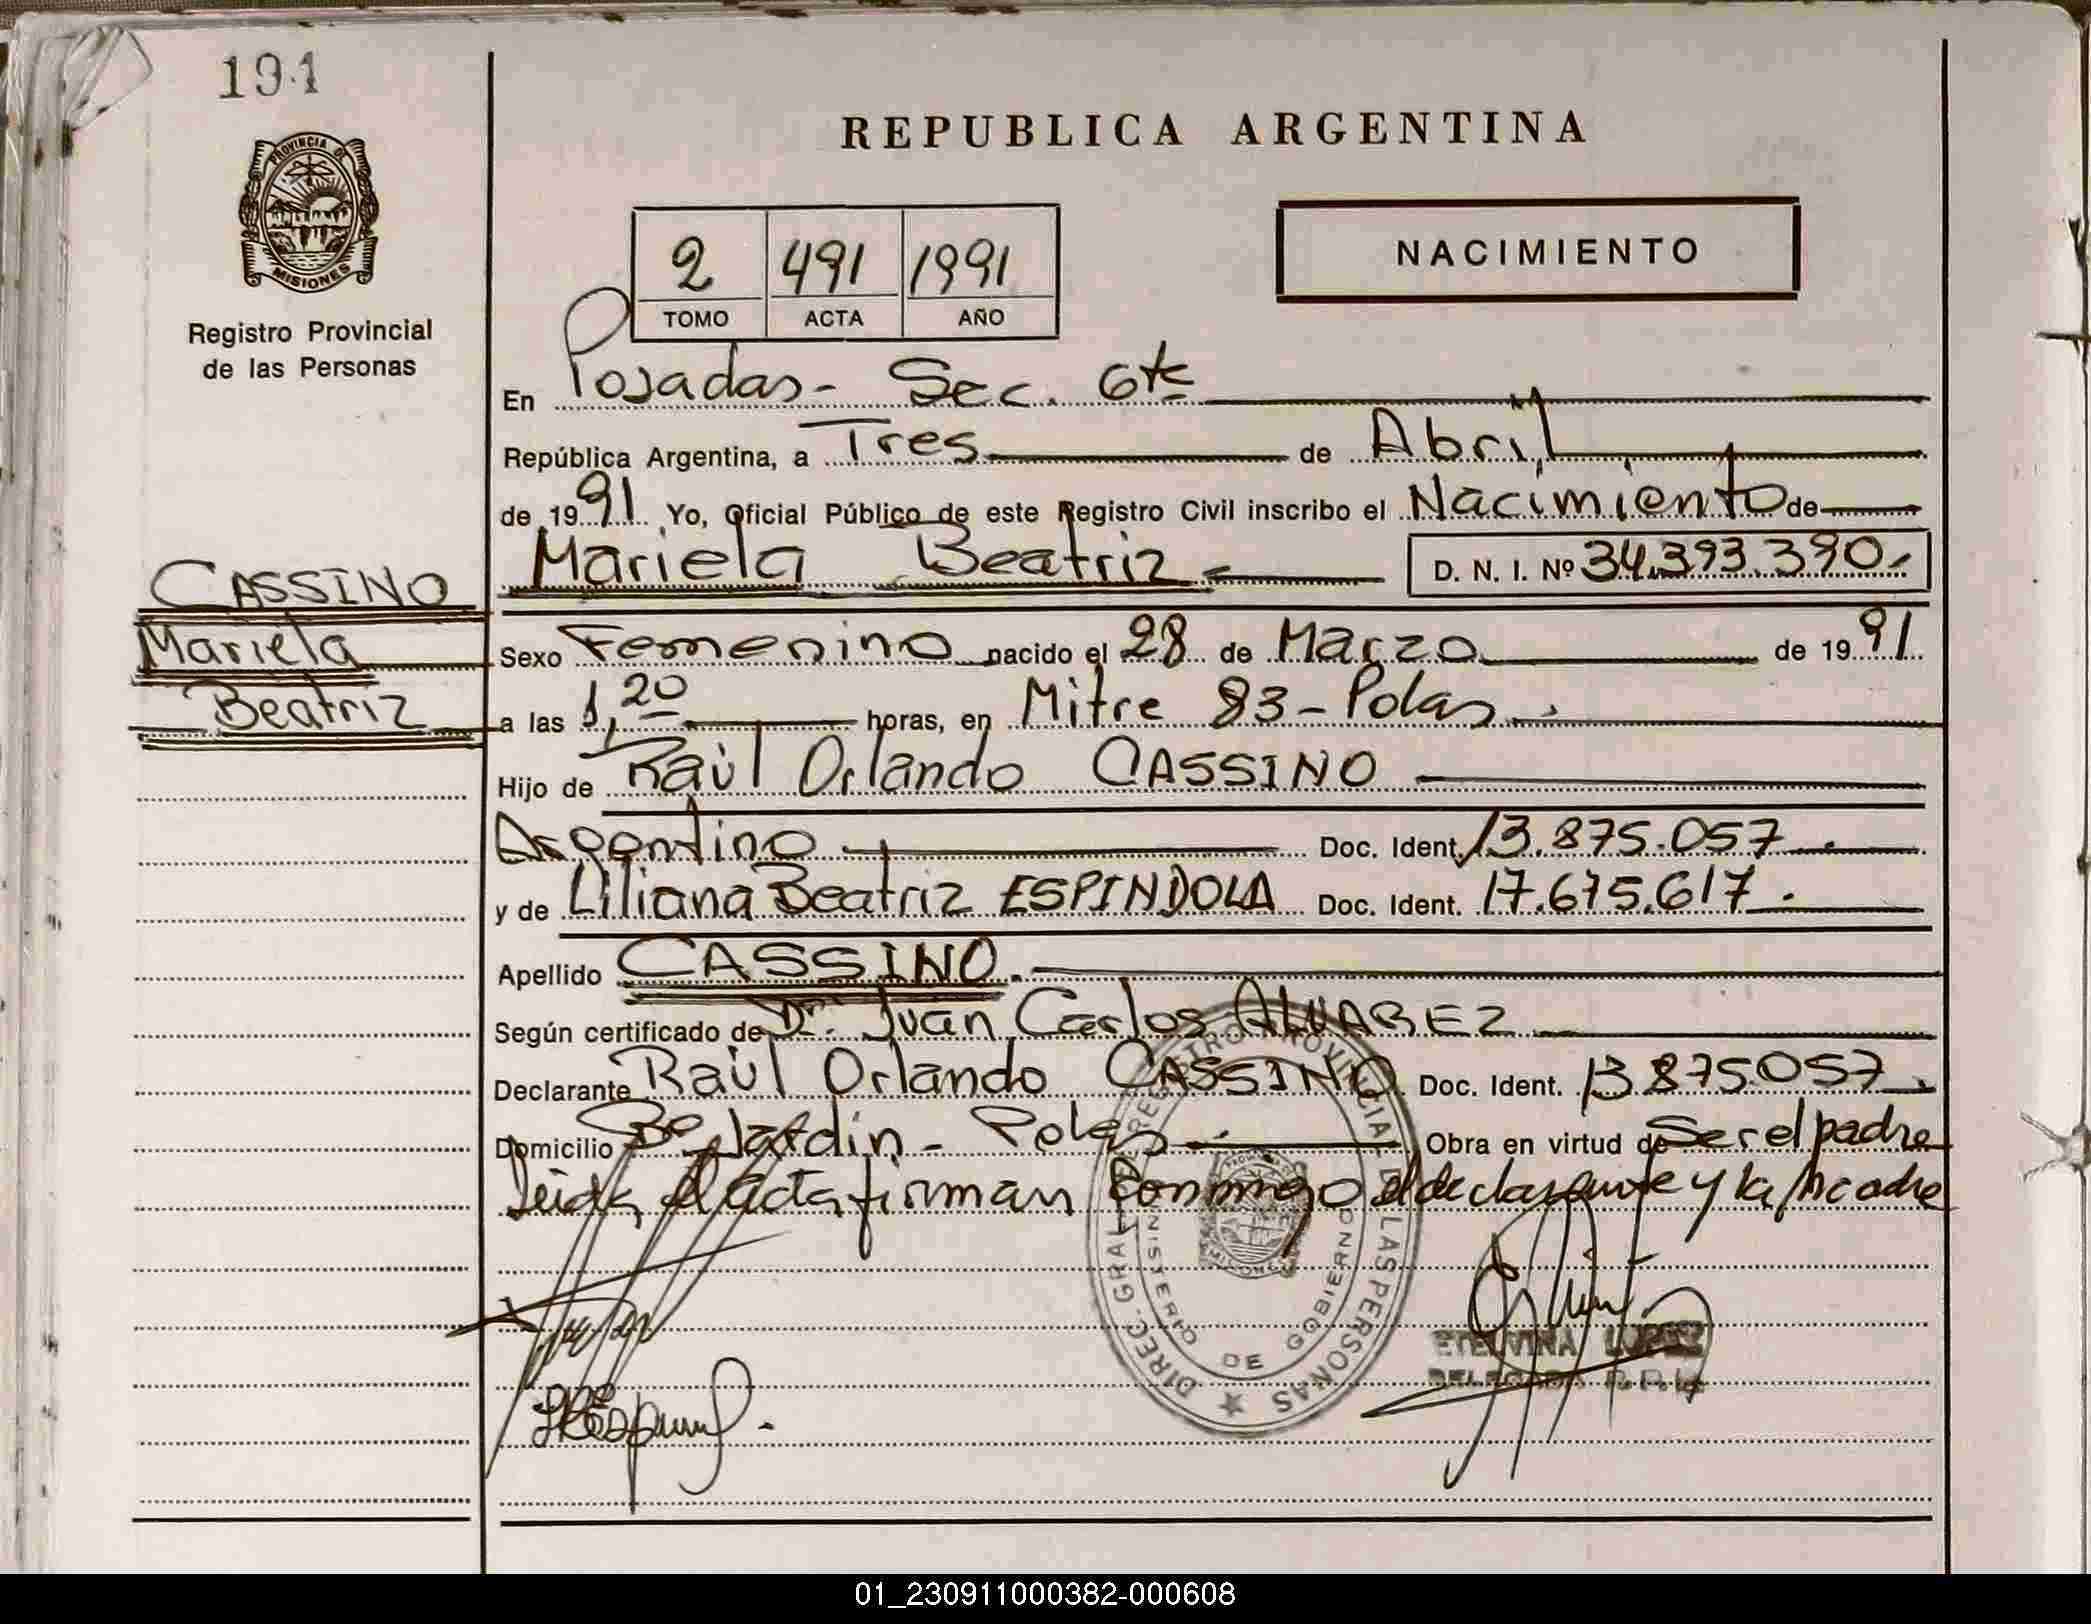 191
PROVINCIA DE
MISIONES
Registro Provincial
de las Personas
REPUBLICA ARGENTINA
2 491 1991
TOMO ACTA AÑO
NACIMIENTO
En Posadas - Sec. 6ta
República Argentina, a Tres de Abril
de 1991 Yo, Oficial Público de este Registro Civil inscribo el Nacimiento de
Mariela Beatriz D. N. I. Nº 34.393.390.-
CASSINO
Mariela
Beatriz
Sexo Femenino nacido el 28 de Marzo de 1991
a las 1,20 horas, en Mitre 83 - Pdas.
Hijo de Raúl Orlando CASSINO
Argentino Doc. Ident. 13.875.057.
y de Liliana Beatriz ESPINDOLA Doc. Ident. 17.675.617.
Apellido CASSINO.
Según certificado de Dr. Juan Carlos ALVAREZ
Declarante Raúl Orlando CASSINO Doc. Ident. 13.875.057.
Domicilio Bº Jardin - Pdas. Obra en virtud de Ser el padre
Leida el acta firman conmigo el declarante y la madre
DIREC. GRAL. REGISTRO PROVINCIAL DE LAS PERSONAS
MINISTERIO DE GOBIERNO
MISIONES
ETELVINA LOPEZ
DELEGADA R.P.P.
01_230911000382-000608